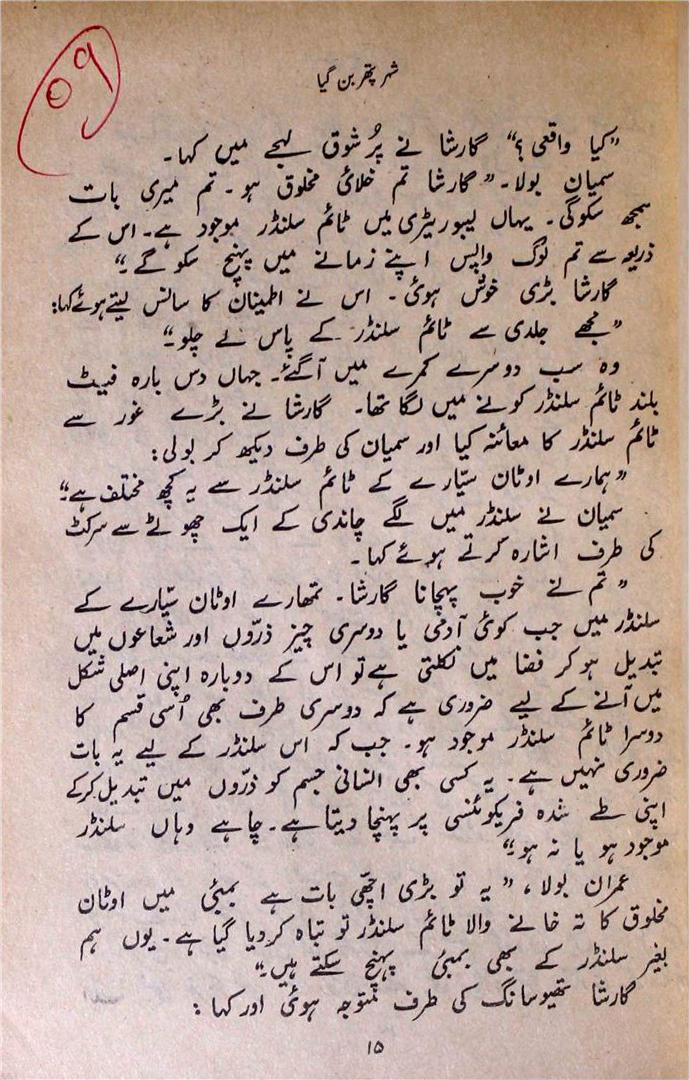 ۵۹
شہر پتھر بن گیا
”کیا واقعی؟“ گارشا نے پُر شوق لہجے میں کہا۔
سمیان بولا۔ ”گارشا تم خلائی مخلوق ہو۔ تم میری بات
سمجھ سکو گی۔ یہاں لیبوریٹری میں ٹائم سلنڈر موجود ہے۔ اس کے
ذریعہ سے تم لوگ واپس اپنے زمانے میں پہنچ سکو گے۔“
گارشا بڑی خوش ہوئی۔ اس نے اطمینان کا سانس لیتے ہوئے کہا:
”مجھے جلدی سے ٹائم سلنڈر کے پاس لے چلو۔“
وہ سب دوسرے کمرے میں آگئے۔ جہاں دس بارہ فیٹ
بلند ٹائم سلنڈر کونے میں لگا تھا۔ گارشا نے بڑے غور سے
ٹائم سلنڈر کا معائنہ کیا اور سمیان کی طرف دیکھ کر بولی:
”ہمارے اوٹان سیّارے کے ٹائم سلنڈر سے یہ کچھ مختلف ہے۔“
سمیان نے سلنڈر میں لگے چاندی کے ایک چھوٹے سے سرکٹ
کی طرف اشارہ کرتے ہوئے کہا۔
”تم نے خوب پہچانا گارشا۔ تمھارے اوٹان سیّارے کے
سلنڈر میں جب کوئی آدمی یا دوسری چیز ذرّوں اور شعاعوں میں
تبدیل ہو کر فضا میں نکلتی ہے تو اس کے دوبارہ اپنی اصلی شکل
میں آنے کے لیے ضروری ہے کہ دوسری طرف بھی اُسی قسم کا
دوسرا ٹائم سلنڈر موجود ہو۔ جب کہ اس سلنڈر کے لیے یہ بات
ضروری نہیں ہے۔ یہ کسی بھی انسانی جسم کو ذرّوں میں تبدیل کرکے
اپنی طے شدہ فریکوئنسی پر پہنچا دیتا ہے۔ چاہے وہاں سلنڈر
موجود ہو یا نہ ہو۔“
عمران بولا، ”یہ تو بڑی اچھّی بات ہے بمبئی میں اوٹان
مخلوق کا تہ خانے والا ٹائم سلنڈر تو تباہ کر دیا گیا ہے۔ یوں ہم
بغیر سلنڈر کے بھی بمبئی پہنچ سکتے ہیں۔“
گارشا تھیوسانگ کی طرف متوجہ ہوئی اور کہا:
۱۵